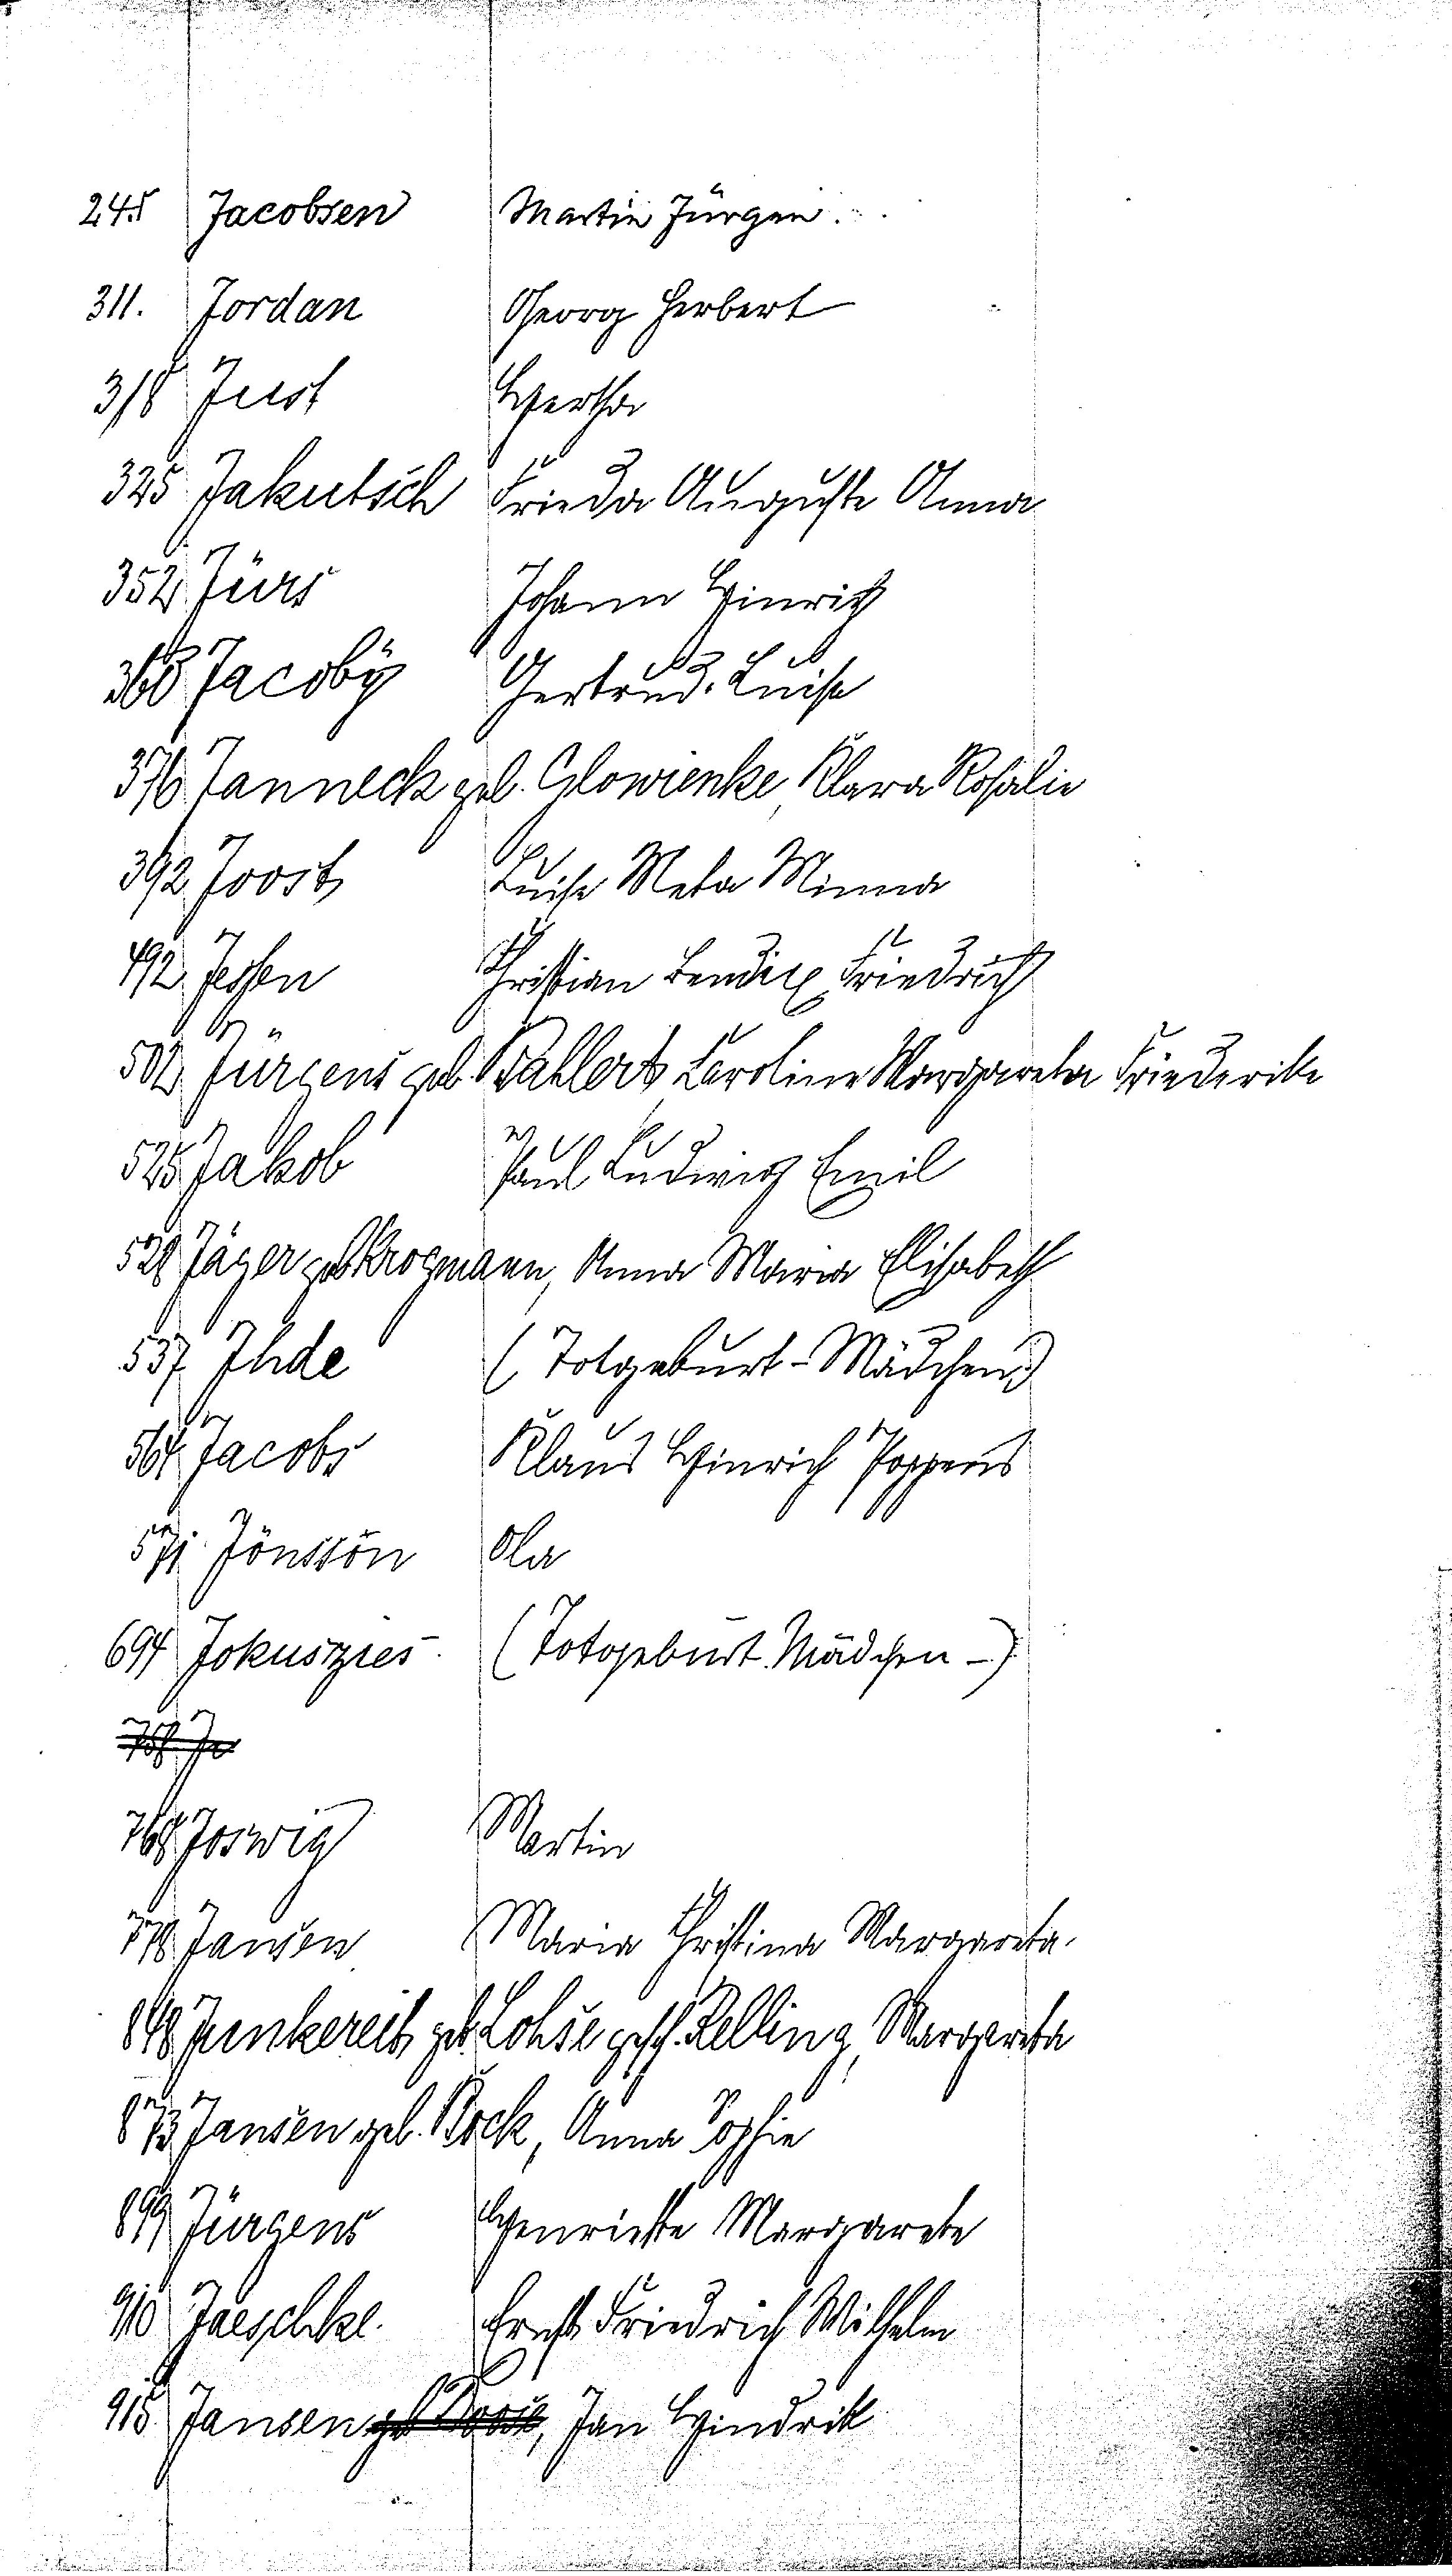 245 Jacobsen Martin Jürgen.
311. Jordan Georg Herbert
318 Just Hertha
325 Jakutsch Frieda Auguste Anna
352 Jürs Johann Hinrich
368 Jacoby Gertrud Luise
376 Janneck geb. Glowienke, Klara Rosalie
392 Joost Luise Meta Minna
492 Jessen Christian Bendix Friedrich
502 Jürgens geb. Wahlert, Caroline Margareta Friederike
525 Jakob Paul Ludwig Emil
528 Jäger geb Krogmann, Anna Maria Elisabeth
537 Ihde (Totgeburt-Mädchen)
564 Jacobs Klaus Hinrich Poppens
571. Jönssön Ola
694 Jokuszies. (Totgeburt. Mädchen -)
758 Ja
768 Joswig Martin
778 Jansen Maria Christina Margareta.
848 Junkereit, geb. Lohse gesch. Relling, Margareta
873 Jansen geb. Bock, Anna Sophie
899 Jürgens Henriette Margarete
910 Jaeschke. Ernst Friedrich Wilhelm
915 Jansen geb , Jan Hindrik